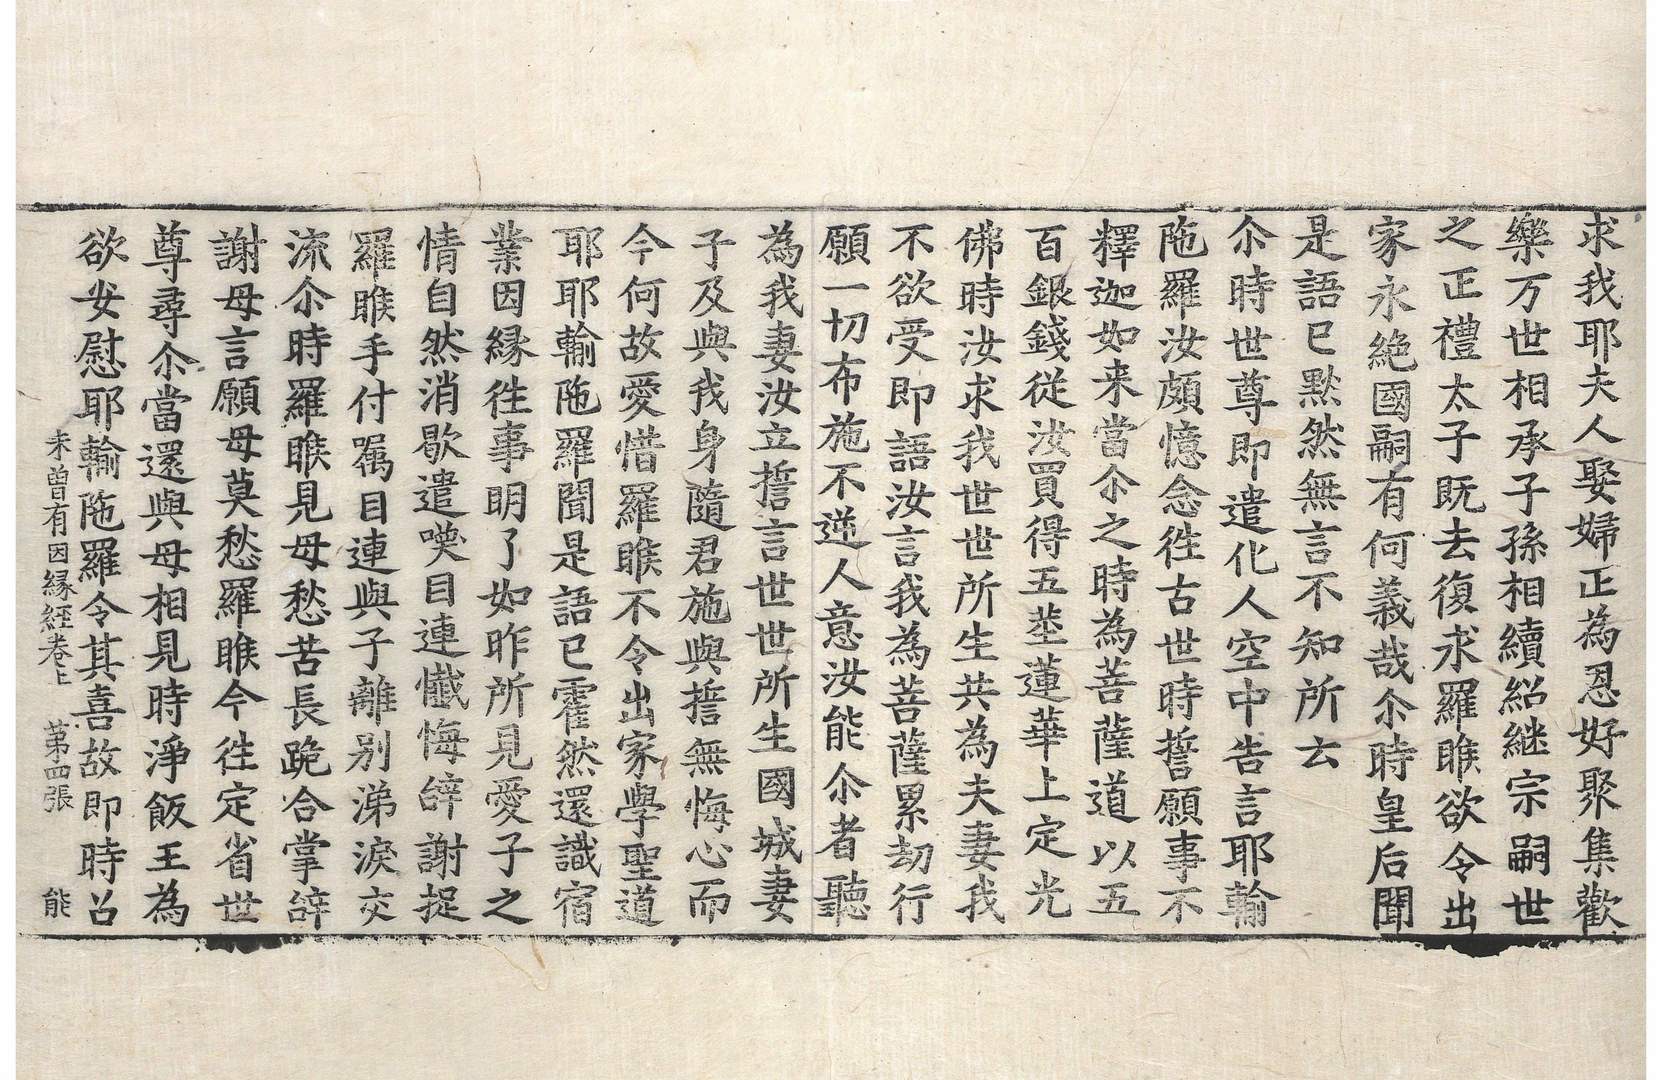 求我耶夫人娶婦正為恩好聚集歡
樂万世相承子孫相續紹継宗嗣世
之正禮太子既去復求羅睺欲令出
家永絶國嗣有何義哉尒時皇后聞
是語已黙然無言不知所云
尒時世尊即遣化人空中告言耶輸
陁羅汝頗憶念徃古世時誓願事不
釋迦如来當尒之時為菩薩道以五
百銀錢從汝買得五莖蓮華上定光
佛時汝求我世世所生共為夫妻我
不欲受即語汝言我為菩薩累劫行
願一切布施不逆人意汝能尒者聽
為我妻汝立誓言世世所生國城妻
子及與我身隨君施與誓無悔心而
今何故愛惜羅睺不令出家學聖道
耶耶輸陁羅聞是語已霍然還識宿
業因縁徃事明了如昨所見愛子之
情自然消歇遣喚目連懺悔辝謝捉
羅睺手付嘱目連與子離別涕淚交
流尒時羅睺見母愁苦長跪合掌辝
謝母言願母莫愁羅睺今徃定省世
尊尋尒當還與母相見時淨飯王為
欲安慰耶輸陁羅令其喜故即時召
未曾有因縁經卷上 苐四張 能